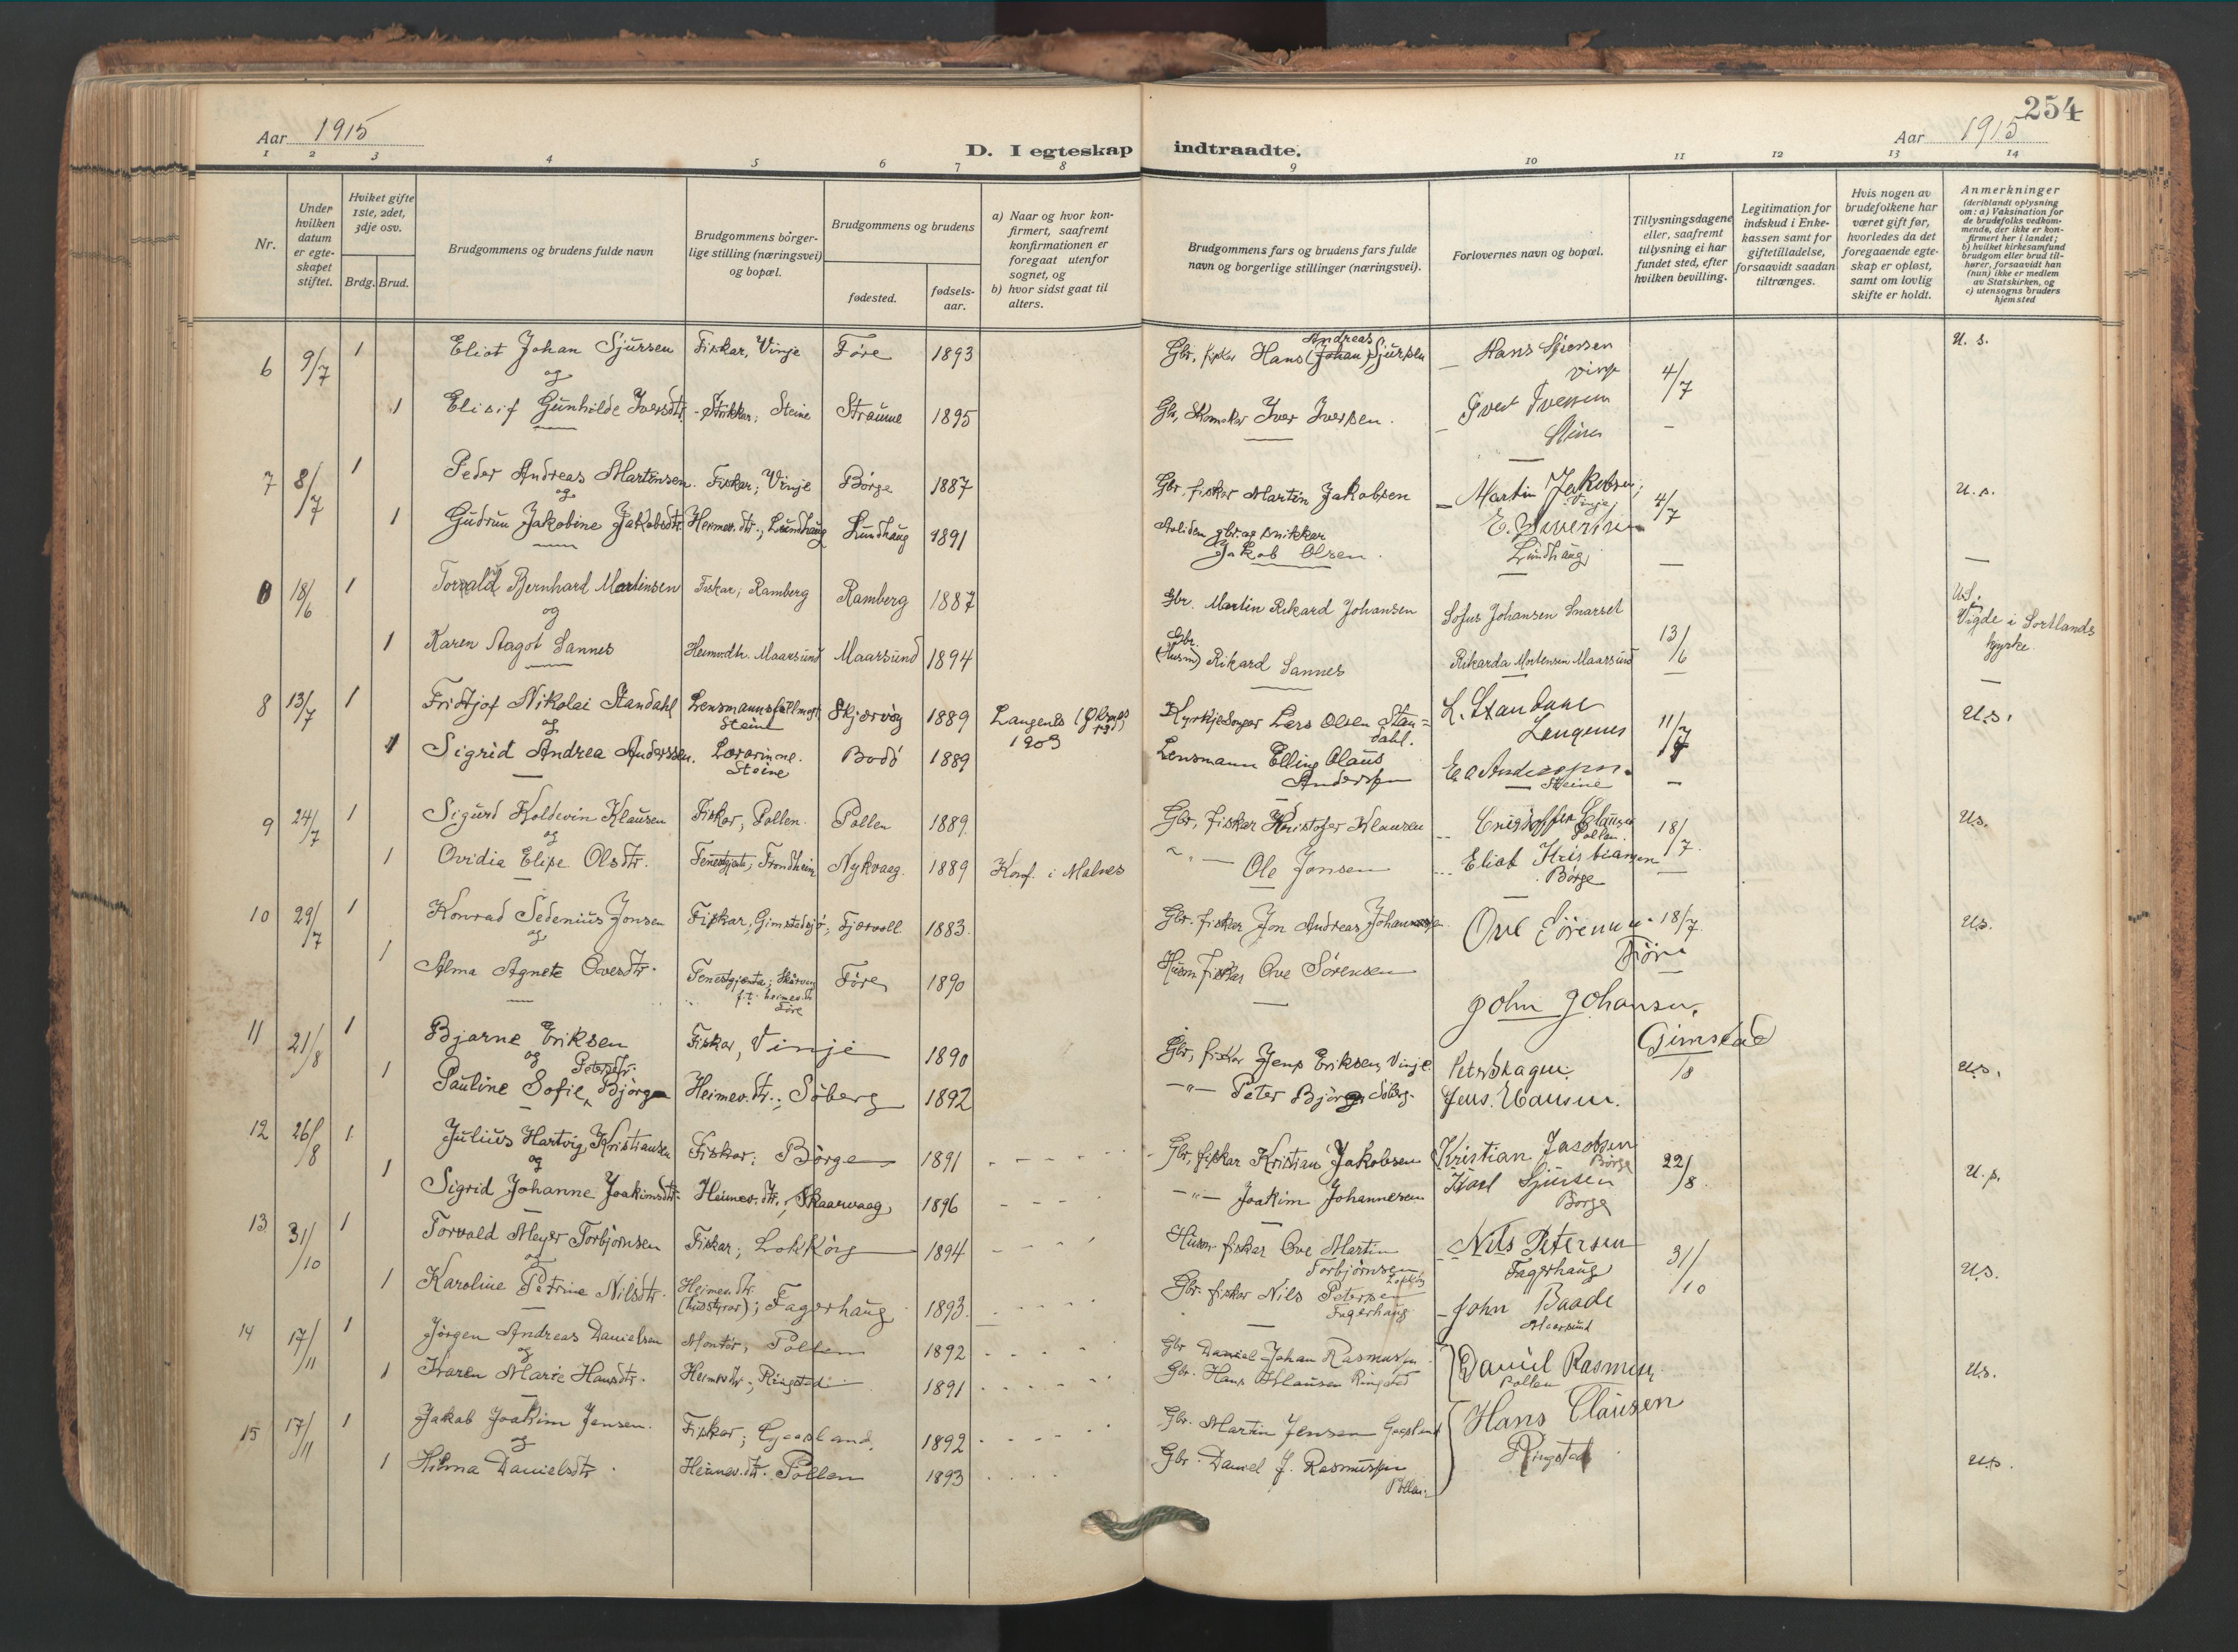 254
Aar 1915
D. I egteskap indtraadte.
Aar 1915
1 2 3 4 5 6 7 8 9 10 11 12 13 14
Nr.
Under hvilken datum er egteskapet stiftet.
Hviket gifte 1ste, 2det, 3dje osv.
Brdg. Brud.
Brudgommens og brudens fulde navn
Brudgommens börgerlige stilling (næringsvei) og bopæl.
Brudgommens og brudens
fødested.
fødselsaar.
a) Naar og hvor konfirmert, saafremt konfirmationen er foregaat utenfor sognet, og
b) hvor sidst gaat til alters.
Brudgommens fars og brudens fars fulde navn og borgerlige stillinger (næringsvei).
Forlovernes navn og bopæl.
Tillysningsdagene eller, saafremt tillysning ei har fundet sted, efter hvilken bevilling.
Legitimation for indskud i Enkekassen samt for giftetilladelse, forsaavidt saadan tiltrænges.
Hvis nogen av brudefolkene har været gift før, hvorledes da det foregaaende egteskap er opløst, samt om lovlig skifte er holdt.
Anmerkninger
(deriblandt oplysning om: a) Vaksination for de brudefolks vedkommende, der ikke er konfirmert her i landet;
b) hvilket kirkesamfund brudgom eller brud tilhører, forsaavidt han (hun) ikke er medlem av Statskirken, og
c) utensogns bruders hjemsted
6 9/7 1 Eliot Johan Sjursen Fiskar, Vinje Føre 1893 Gbr, fisker Hans (Johan) Andreas Sjursen Hans Sjursen Vinje 4/7 U. s.
og
1 Elisif Gunhilde Iversdtr. Strikkar; Steine Straume 1895 Gbr, Skomaker Iver Iversen. Ivert Iversen Steine
7 8/7 1 Peder Andreas Martinsen. Fiskar; Vinje Börge 1887 Gbr. fisker Martin Jakobsen Martin Jakobsen; Vinje 4/7 U. s.
og
1 Gudrun Jakobine Jakobsdtr. Heimev.dtr.; Lundhaug Lundhaug 1891 gbr. og snikkar Jakob Olsen. E. Sivertsen Lundhaug
18/6 1 Torvald Bernhard Martinsen Fiskar; Ramberg Ramberg 1887 Gbr. Martin Rikard Johansen Sofus Johansen Snarset 13/6 U.S. Vigde i Sortlands kyrke.
og
1 Karen Aagot Sannes Heimvdtr. Maarsund Maarsund 1894 Gbr. (Husm) Rikard Sannes Rikarda Mortensen Maarsund
8 13/7 1 Fridtjof Nikolai Standahl Lensmannsfullmegt. Steine Skjervöy 1889 Langenes (Øksnes) 1903 Kyrkjesongar Lars Olsen Standahl. L. Standahl Langenes 11/7 U.s.
og
1 Sigrid Andrea Anderssen. Lærarinne. Steine Bodö 1889 Lensmann Elling Olaus Anderssen E. O. Anderssen. Steine
9 24/7 1 Sigurd Koldevin Klausen Fiskar, Pollen. Pollen 1889. Gbr, fiskar Kristofer Klausen Cristoffer Clausen Pollen. 18/7. U.s.
og
1 Ovidia Elise Olsdtr. Tenestgjente, Trondheim Nykvaag. 1889 Konf. i Malnes Ole Jonsen Eliot Kristiansen Börge
10 29/7 1 Konrad Sedenius Jonsen Fiskar; Gimstadsjö; Fjærvoll 1883. Gbr. fiskar Jon Andreas Johannessen Ove Sörensen Före 18/7. U.s.
og
1 Alma Agnete Ovesdtr. Tenestgjenta; f.t. heimev.dtr. Före Före 1890 Husm. fiskar Ove Sörensen John Johansen. Gimstad
11 21/8 1 Bjarne Eriksen Fiskar, Vinje 1890 Gbr, fiskar Jens Eriksen, Vinje. Peter Skagen. /8 U.s.
og
1 Pauline Sofie Petersdtr. Björge Heimev.dtr.; Söberg 1892 Peter Björge Söberg. Jens. Hansen.
12 26/8 1. Julius Hartvig Kristiansen Fiskar; Börge 1891 Gbr, fiskar Kristian Jakobsen Kristian Jacobsen Börge 22/8. U. s.
og
1 Sigrid Johanne Joakimsdtr. Heimev.dtr.; Skaarvaag 1896 Joakim Johannesen Karl Sjursen Börge
13 31/10 1 Torvald Meyer Torbjörnsen Fiskar; Lokköyg 1894 Husm. fiskar Ove Martin Torbjörnsen Nils Petersen Fagerhaug 31/10 U.s.
og
1 Karoline Petrine Nilsdtr. Heimev.dtr. (husstyrar); Fagerhaug 1893. Gbr. fiskar Nils Petersen Fagerhaug John Baade Maarsund
14 17/11 1 Jörgen Andreas Danielsen Montör, Pollen 1892 Gbr Daniel Johan Rasmussen Daniel Rasmussen Pollen U.s.
og
1 Karen Marie Hansdtr. Heimevdtr.; Ringstad 1891 Gbr. Hans Klausen Ringstad
15 17/11 1 Jakob Joakim Jensen. Fiskar; Gaasland. 1892 Gbr. Martin Jensen Gaasland Hans Clausen Ringstad U.s.
og
1 Hilma Danielsdtr. Heimev.dtr. Pollen 1893 Gbr. Daniel J. Rasmussen Pollen